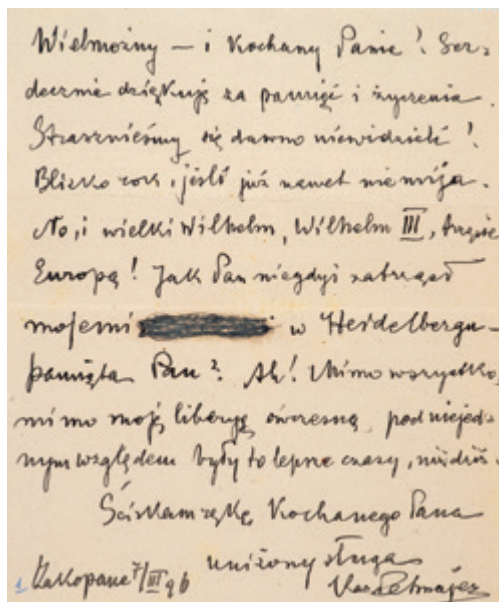 Wielmożny — i Kochany Panie! Ser-
decznie dziękuję za pamięć i życzenia.
Strasznieśmy się dawno niewidzieli!
Blizko rok, jeśli już nawet nie mija.
No, i wielki Wilhelm, Wilhelm III, trzęsie
Europą! Jak Pan niegdyś zatrząsł
mojemi w Heidelbergu-
pamięta Pan? Ah! Mimo wszystko,
mimo moją liberyę ówczesną, pod niejed-
nym względem były to lepsze czasy, niż dziś.
Ściskam rękę Kochanego Pana
uniżony sługa
Zakopane 7/III 96
Kaz Tetmajer